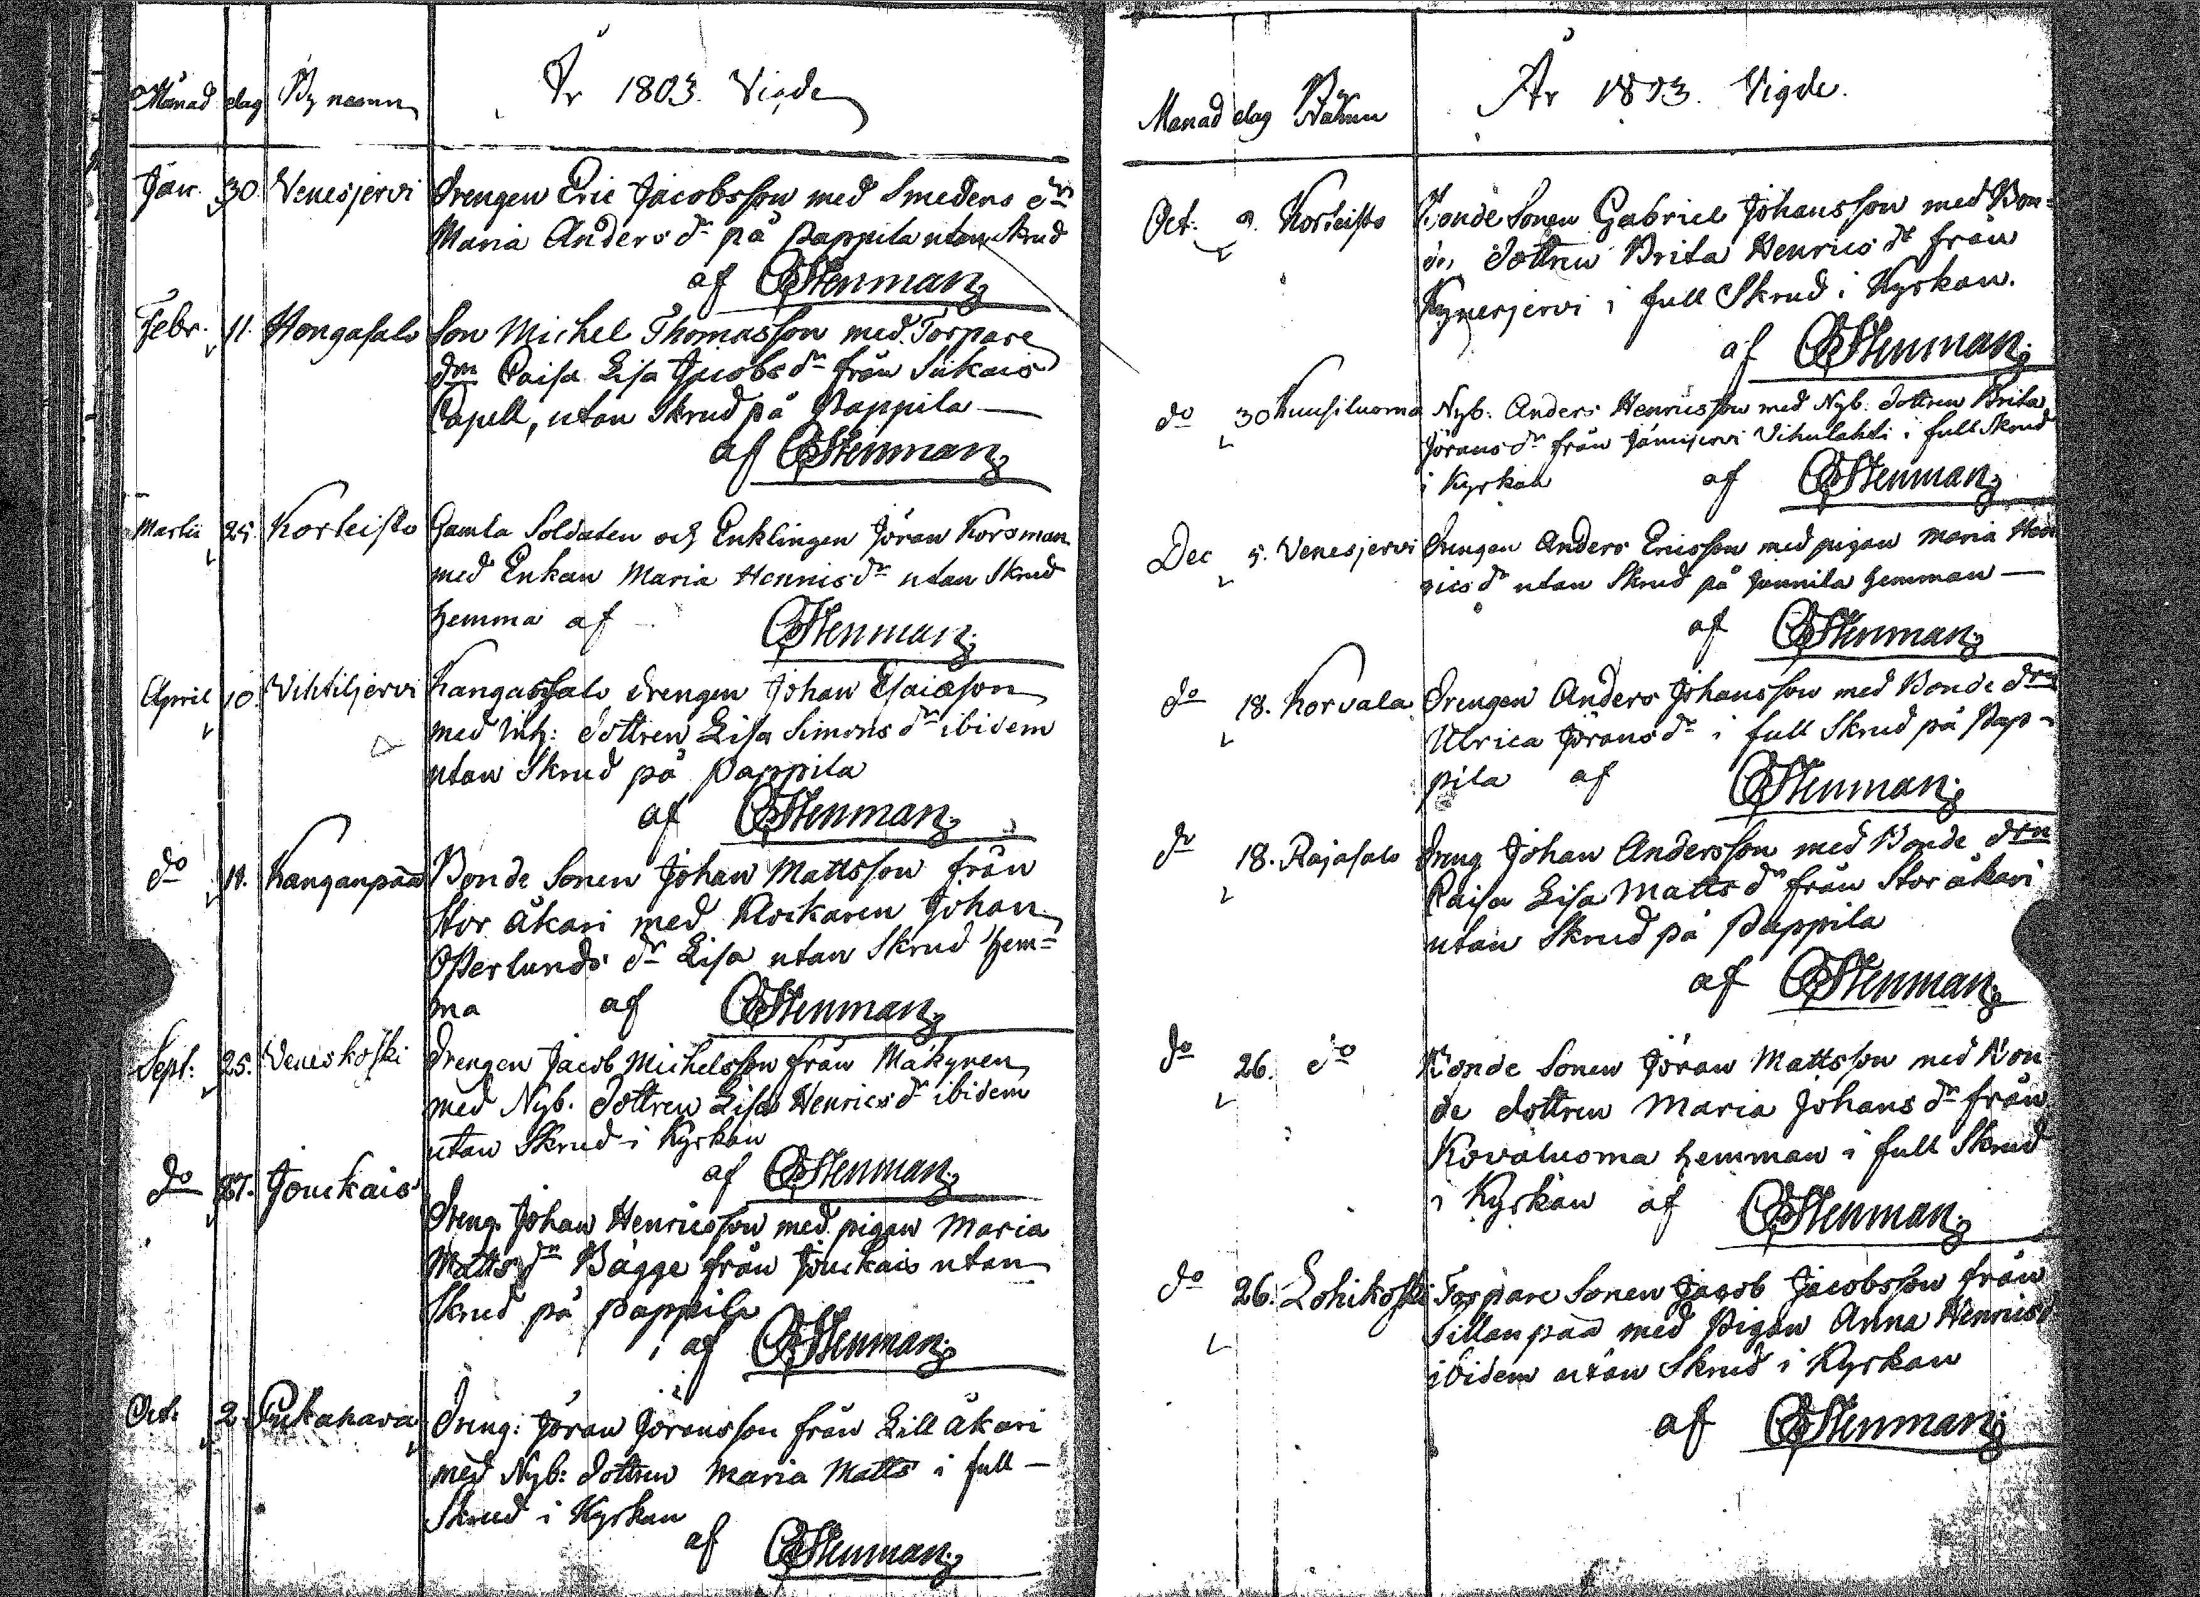 Månad dag By namn År 1803. Vigde
Jan. 30. Venesjervi Drengen Eric Jacobsson med Smedens dr
Maria Anders dr på Pappila utan Skrud
af CGStenman
Febr. 11. Hongasalo Son Michel Thomasson med Torpare
drn Caisa Lisa Jacobs dr från Sükais
Capell, utan Skrud på Pappila
af CGStenman
Martii 25. Korteisto Gamla Soldaten och Enklingen Jöran Korsman
med Enkan Maria Henrics dr utan Skrud
hemma af CGStenman
April 10. Vihtiljervi Kangassalo drengen Johan Esaiæson
med dottren Lisa Simons dr ibidem
utan Skrud på Pappila
af CGStenman
do Kanganpää Bonde Sonen Johan Mattsson från
Stor äkari med Klockaren Johan
Österlunds dr Lisa utan Skrud hem=
ma af CGStenman
Sept: 25. Veneskoski Drengen Jacob Michelsson från Mäkynen
med Nyb. dottren Lisa Henrics dr ibidem
utan Skrud i Kyrkan
af CGStenman
do 27. Jouckais
Dreng. Johan Henricsson med pigan Maria
Matts dr Bagge från Jouckais utan
Skrud på Pappila
af CGStenman
Oct. 2. Pukanava Dreng: Jöran Jöransson från Lill äkari
med Nyb: dottren Maria Matts i full
Skrud i Kyrkan
af CGStenman
Månad dag By Namn År 1803. Vigde.
Oct: 9. Korteisto Bonde Sonen Gabriel Johansson med Bon=
de dottren Brita Henrics dr från
Kynerjervi i full Skrud i Kyrkan.
af CGStenman
do 30 Kuusiluoma Nyb: Anders Henricsson med Nyb: dottren Brita
Jörans dr från Jämijervi Vihulahti i full Skrud
i Kyrkan af CGStenman
Dec 5. Venesjervi Drengen Anders Ericsson med pigan Maria Hen
rics dr utan Skrud på Jannila hemman
af CGStenman
do 18. Korvala Drengen Anders Johansson med Bonde drn
Ulrica Jörans dr i full Skrud på Pap=
pila af CGStenman
do 18. Rajasalo Dreng Johan Andersson med Bonde drn
Caisa Lisa Matts dr från Stor äkari
utan Skrud på Pappila
af CGStenman
do 26. do Bonde Sonen Jöran Mattsson med Bon
de dottren Maria Johans dr från
Kovaluoma hemman i full Skrud
i Kyrkan af CGStenman
do 26. Lohikoski Torpare Sonen Jacob Jacobsson från
Sillanpää med Pigan Anna Henrics d
ibidem utan Skrud i Kyrkan
af CGStenman